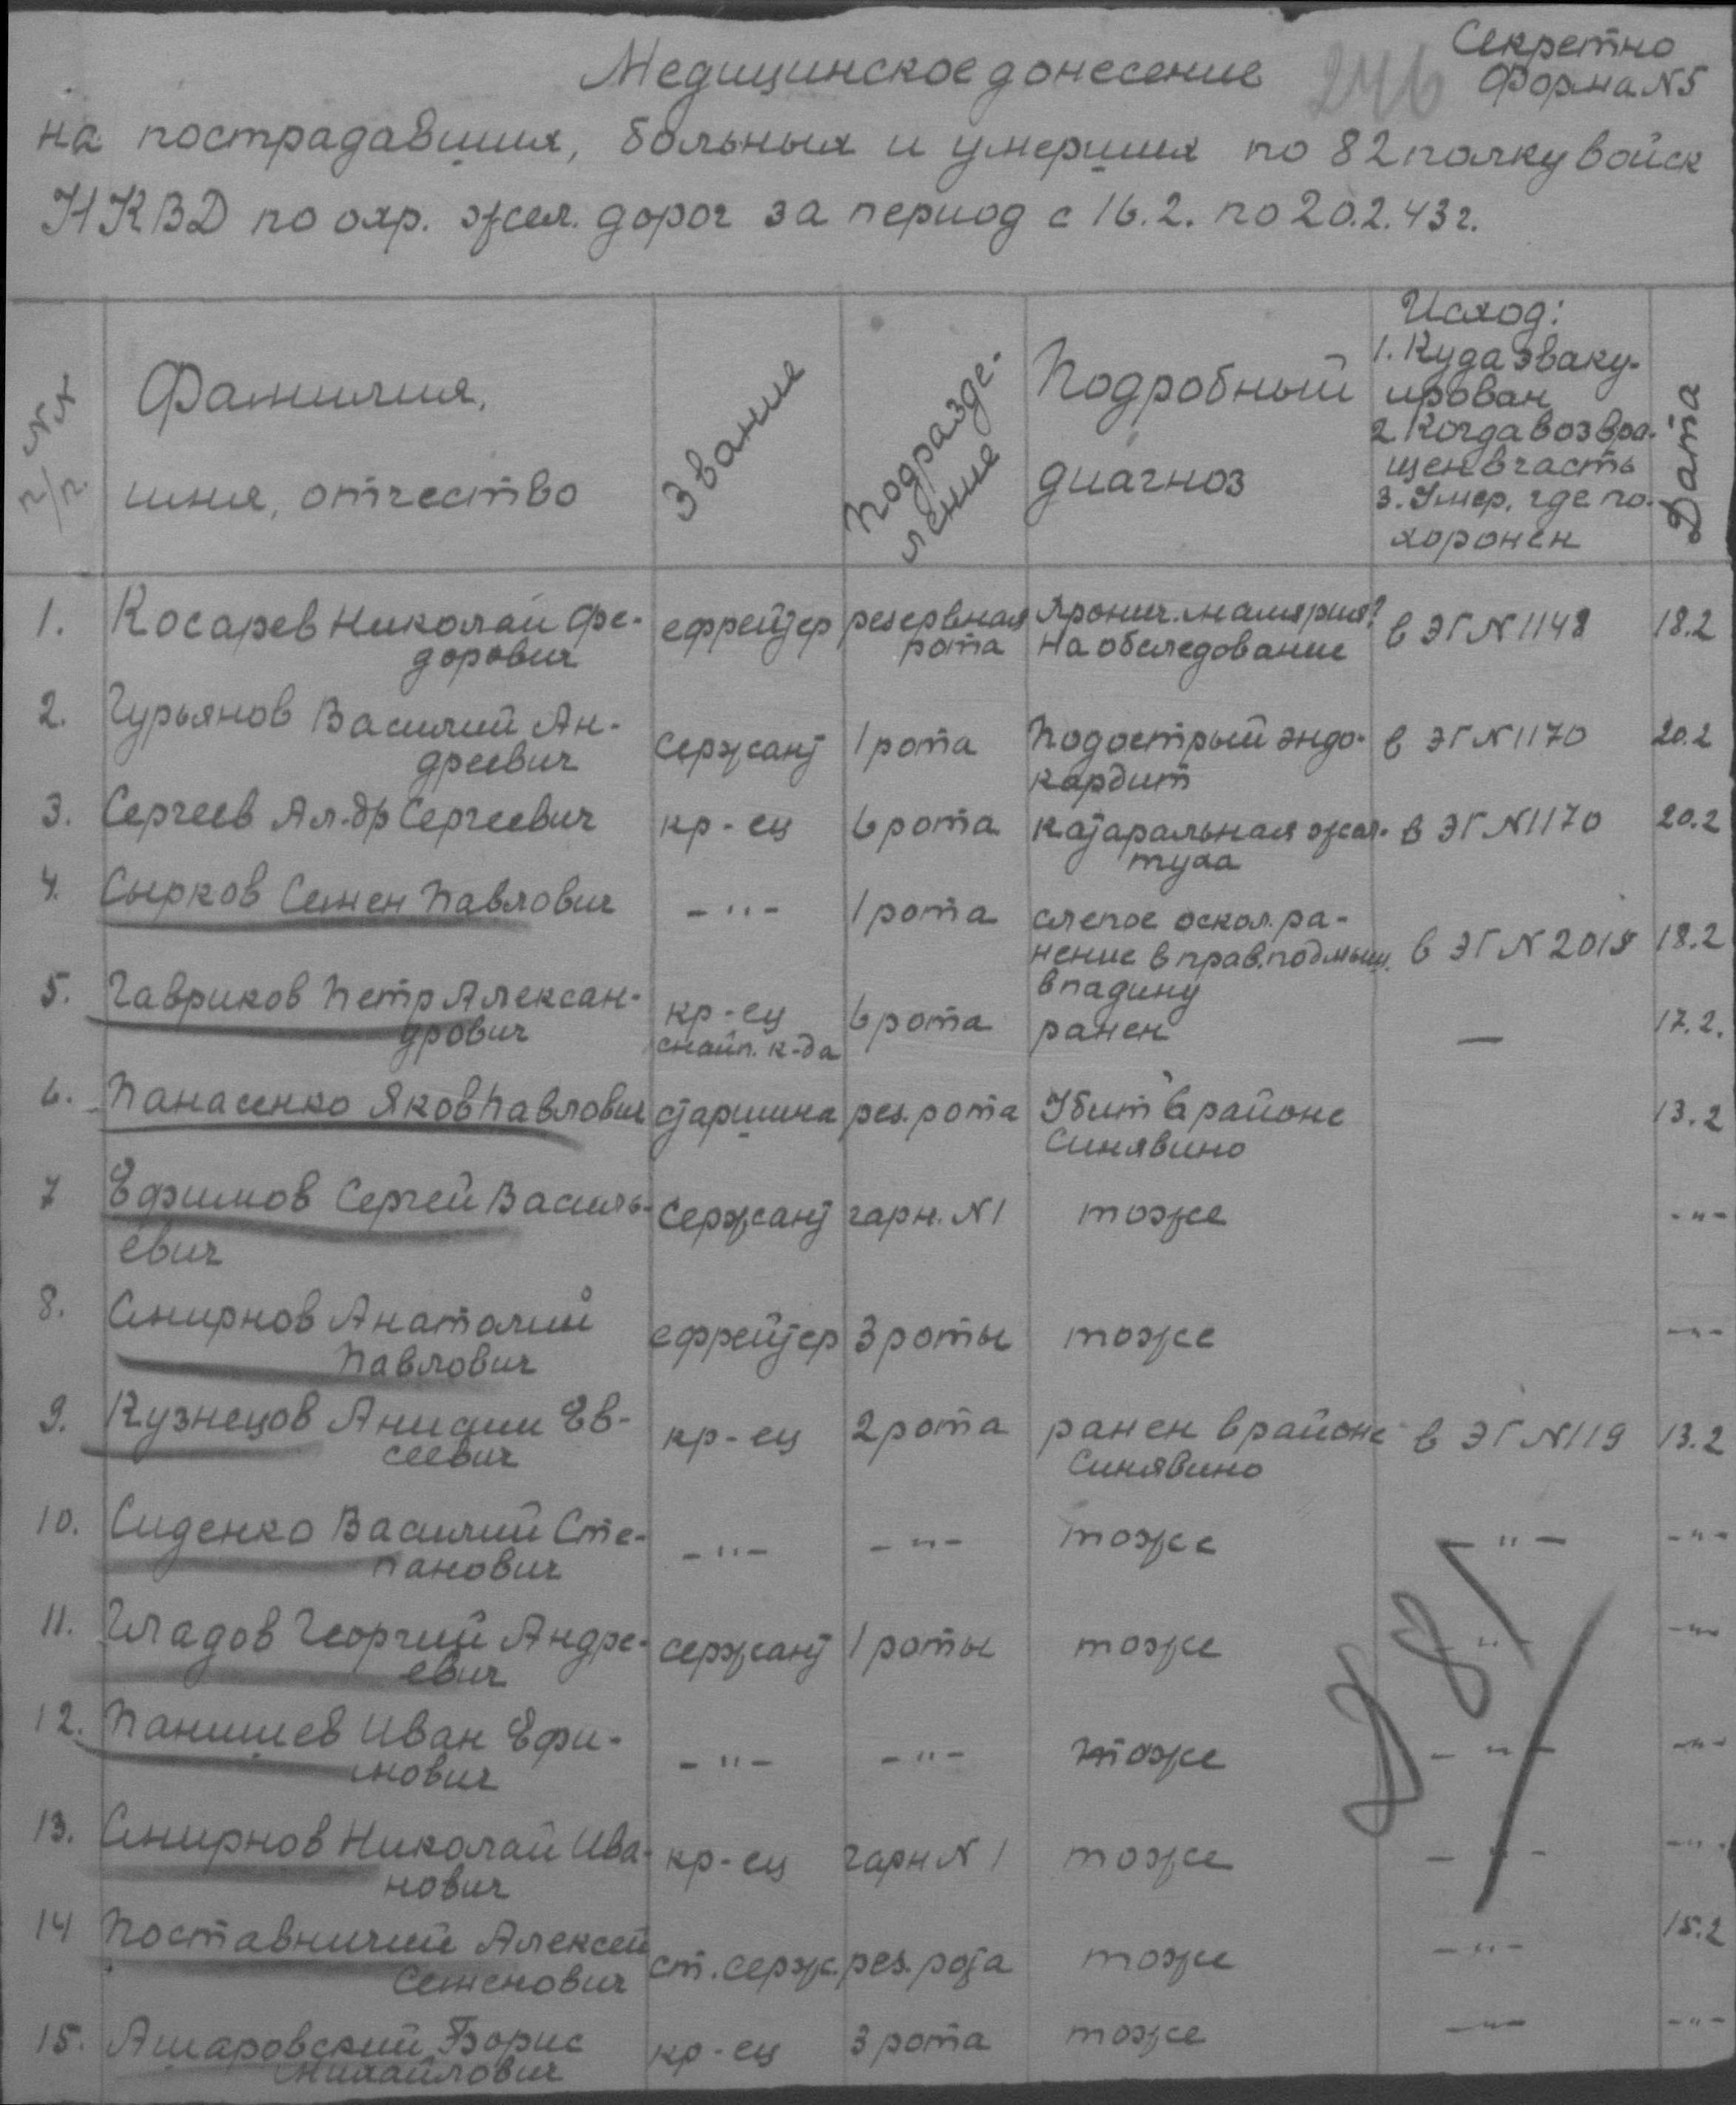 Секретно
Форма N5
246
Медицинское донесение
на пострадавших, больных и умерших по 82 полку войск
НКВД по охр. жел. дорог за период с 16.2. по 20.2.43 г.
NN п/п
Фамилия,
имя, отчество
Звание
Подразде-
ление
Подробный
диагноз
Исход:
1. Куда эваку-
ирован
2. Когда возвра-
щен в часть
3. Умер, где по-
хоронен
Дата
1. Косарев Николай Фе- ефрейтер резервная Хронич. малярия? в ЭГ N 1148 18.2
дорович рота на обследование
2. Гурьянов Василий Ан- сержант 1 рота Подострый эндо- в ЭГ N 1170 20.2
дреевич кардит
3. Сергеев Ал-др Сергеевич кр-ец 6 рота катаральная жел- в ЭГ N 1170 20.2
туха
4. Сырков Семен Павлович -"- 1 рота слепое оскол. ра-
нение в прав. подмыш. в ЭГ N 2018 18.2
впадину
5. Гавриков Петр Алексан- кр-ец 6 рота ранен — 17.2.
дрович снайп. к-да
6. Панасенко Яков Павлович старшина рез. рота Убит в районе 13.2
Синявино
7 Ефимов Сергей Василь- сержант гарн. N 1 тоже -"-
евич
8. Смирнов Анатолий ефрейтер 3 роты тоже -"-
Павлович
9. Кузнецов Анисим Ев- кр-ец 2 рота ранен в районе в ЭГ N 119 13.2
сеевич Синявино
10. Сиденко Василий Сте- -"- -"- тоже -"- -"-
панович
11. Гладов Георгий Андре- сержант 1 роты тоже -"- -"-
евич
12. Панишев Иван Ефи- -"- -"- тоже -"- -"-
мович
13. Смирнов Николай Ива- кр-ец гарн N 1 тоже -"- -"-
нович
14 Поставничий Алексей ст. серж. рез. рота тоже -"- 15.2
Семенович
15. Ашаровский Борис кр-ец 3 рота тоже -"- -"-
Михайлович